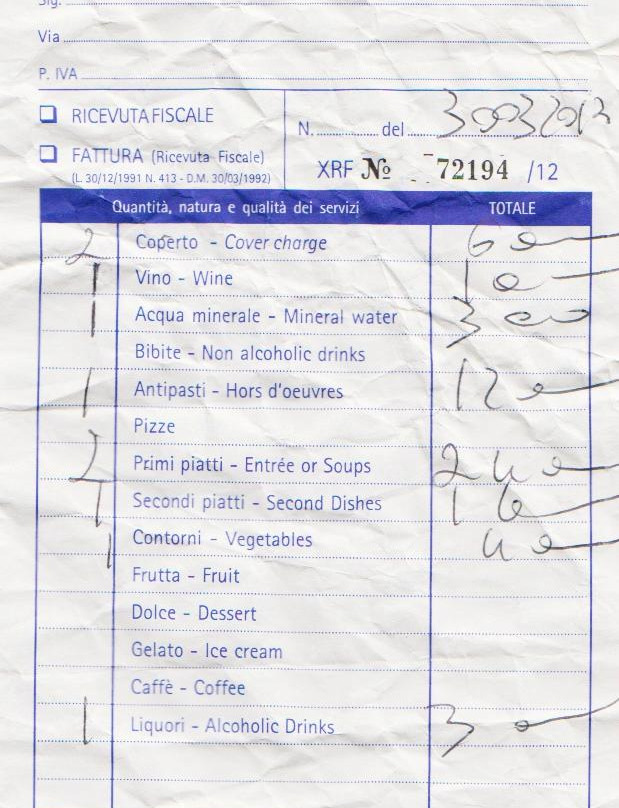 Sig.
Via
P. IVA
RICEVUTA FISCALE
N. del 30032013
FATTURA (Ricevuta Fiscale)
(L. 30/12/1991 N. 413 - D.M. 30/03/1992)
XRF № 72194 /12
Quantità, natura e qualità dei servizi TOTALE
2 Coperto - Cover charge 6 0
1 Vino - Wine
1 Acqua minerale - Mineral water 3 00
Bibite - Non alcoholic drinks
1 Antipasti - Hors d'oeuvres 12 0
Pizze
2 Primi piatti - Entrée or Soups 24 0
1 Secondi piatti - Second Dishes
1 Contorni - Vegetables 4 0
Frutta - Fruit
Dolce - Dessert
Gelato - Ice cream
Caffè - Coffee
1 Liquori - Alcoholic Drinks 3 0